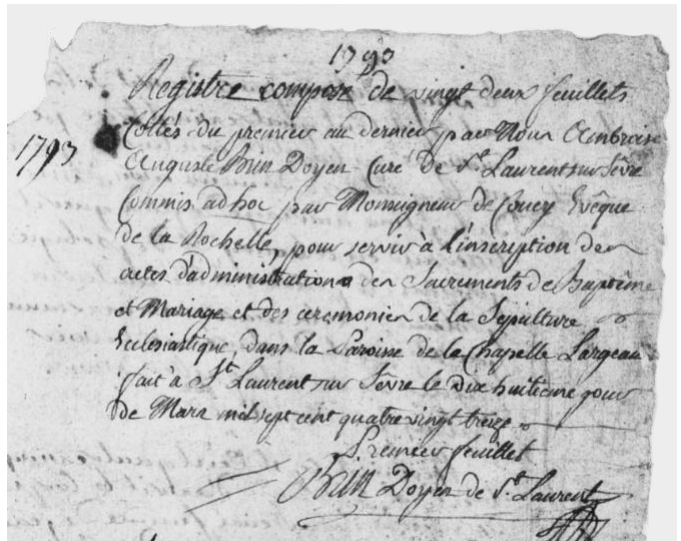 1793
Registre composé de vingt deux feuillets
1793
Cottés du premier au dernier par Nous Ambroise
Auguste Brin Doyen Curé de St Laurent sur Sêvre
Commis ad hoc par Monseigneur de Coucy Evêque
de la Rochelle, pour servir à l'inscription des
actes d'administration des Sacrements de Baptême
et Mariage et des ceremonies de la Sepulture
Ecclesiastique, dans la Paroisse de la Chapelle Largeau
fait à St Laurent sur Sevre le dix huitieme jour
de Mars mil sept cent quatre vingt treize
Premier feuillet
Brin Doyen de St Laurent